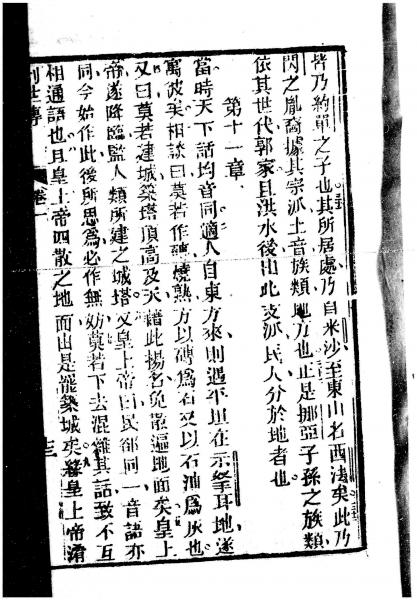 皆乃約單之子也其所居處乃自米沙至東山名西法矣此乃
閃之胤裔據其宗派土音族類地方也正是挪亞子孫之族類
依其世代郭家且洪水後出此支派民人分於地者也
第十一章
當時天下話均音同適人自東方來則遇平坦在示拏耳地遂
寓彼矣相談曰莫若作磚燒熟方以磚為石又以石油為灰也
又曰莫若建城築塔頂高及天藉此楊名免散遍地面矣皇上
帝遂降臨監人類所建之城塔又皇上帝曰民卻同一音語亦
同今始作此後所思為必作無妨莫若下去混雜其話致不互
相通語也且皇上帝四散之地而由是罷築城矣緣皇上帝淆
創世傳 卷一 十三